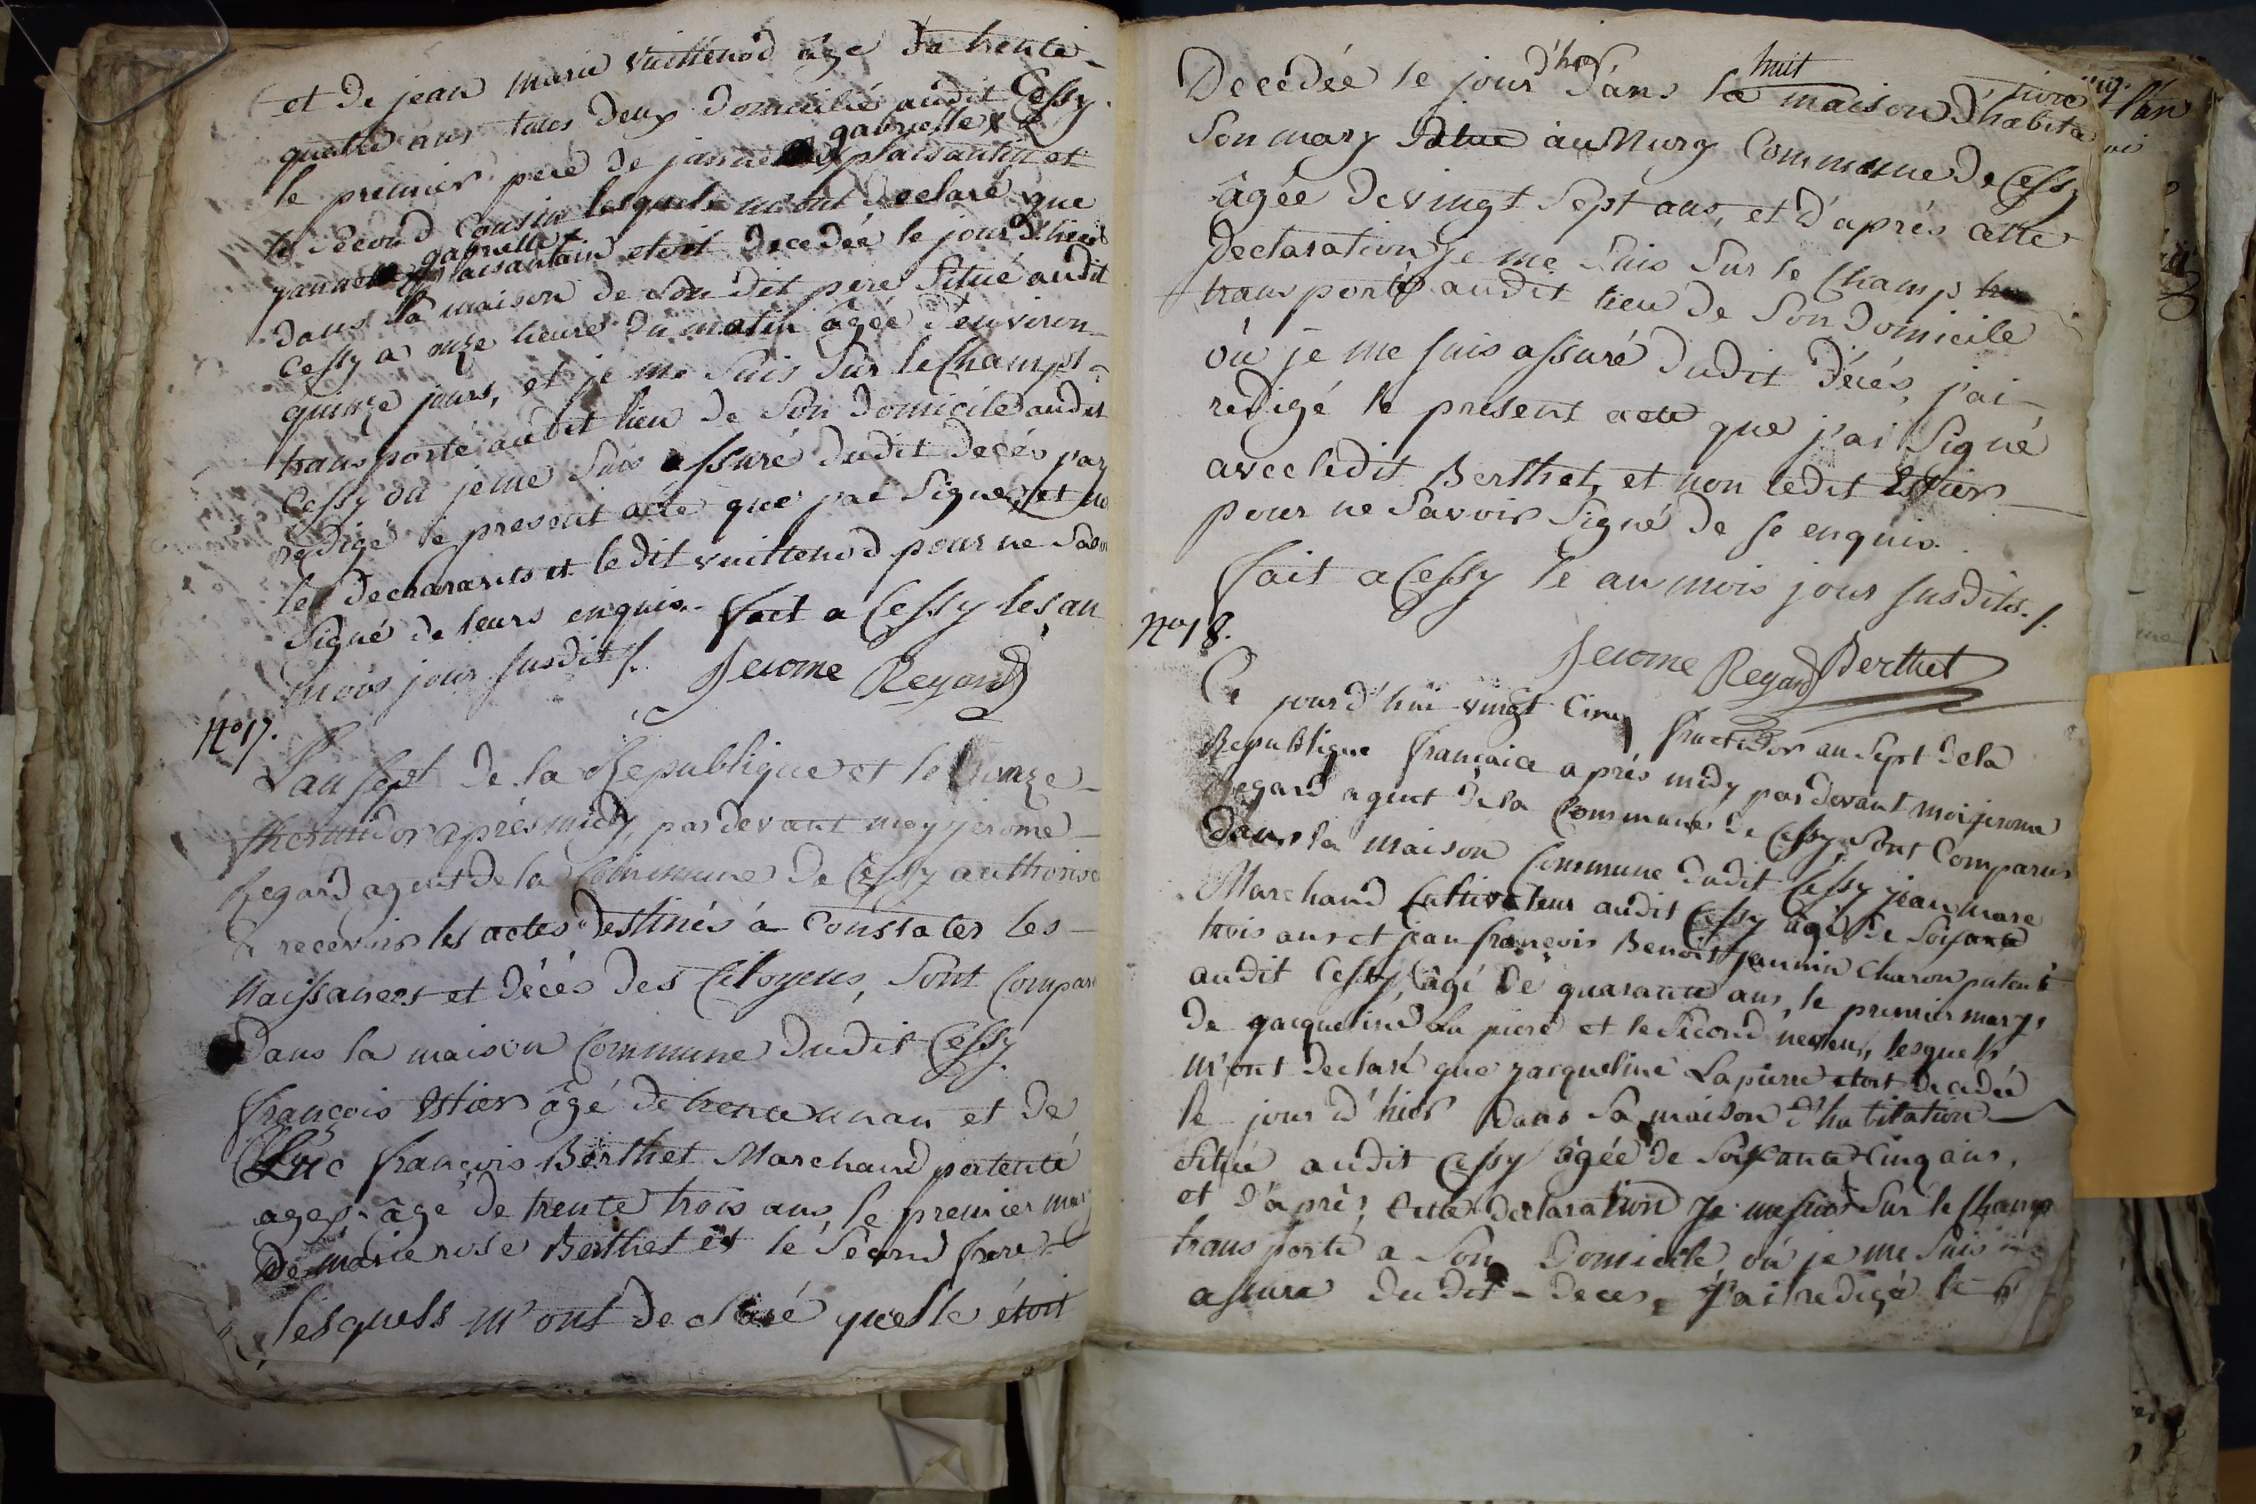 et de jean marie vuittenod age de trente
quatre ans tous deux domicilié audit Cessy.
le premier pere de jeanne gabrielle plaisantin et
le second Cousin lesquels mont declaré que
jeanne gabrielle plaisantain etoit decedée le jour d'hier
dans la maison de son dit pere Situé audit
Cessy a onze heures du matin agée d'environ
quinze jours, et je me Suis Sur le Champt
transporté audit lieu de Son domicile audit
Cessy ou je me Suis assuré dudit decés j'ay
redigé le present acte que j'ai Signé, et no
les declarants et ledit vuittenod pour ne Savoir
Signé de leurs enquis. fait a Cessy les an
mois jour susdit /.
Jerome Regard
No 17.
L'an sept de la Republique et le quinze
thermidor après midy, pardevant moy jerome
Regard agent de la Commune de Cessy authorisé
a recevoir les actes destinés à Constater les
Naissances et décés des Citoyens, Sont Compar
dans la maison Commune dudit Cessy.
françois Estier âgé de trente un an et de
Luc françois Berthet Marchand pattenté
agé âgé de trente trois ans, le premier mary
de marie rose Berthet et le Second frere
lesquels m'ont declaré qu'elle étoit
Decédée le jour d'hier dans la maison d'habita
huit
Son mary Situé au Murg Commune de Cessy
âgée de vingt Sept ans, et d'après cette
Declaration je me Suis Sur le Champ
transporté audit lieu de Son Domicile
où je me suis assuré dudit Décés, j'ai
redigé le present acte que j'ai Signé
avec ledit Berthet, et non ledit Estier
pour ne Savoir Signé de se enquis.
fait a Cessy le an mois jour susdits. /.
Jerome Regard Berthet
No 18.
Ce jourd'hui vingt Cinq fructidor an Sept de la
Republique françaice après midy pardevant moi jerome
Regard agent de la Commune de Cessy, Sont Comparus
dans la maison Commune dudit Cessy jean marc
Marchand Cultivateur audit Cessy agé de Soixante
trois ans et jean françois Benoit jeannin Charon patenté
audit Cessy, âgé de quarante ans, le premier mary
de jacqueline La piere et le Second neveu, lesquels
m'ont declaré que jacqueline Lapierre etoit decedée
le jour d'hier dans Sa maison d'habitation
Situé audit Cessy âgée de Soixante Cinq ans,
et d'après cette declaration je me suis Sur le Champ
transporté a Son Domicile, où je me Suis
assuré dudit deces, j'ai redigé le